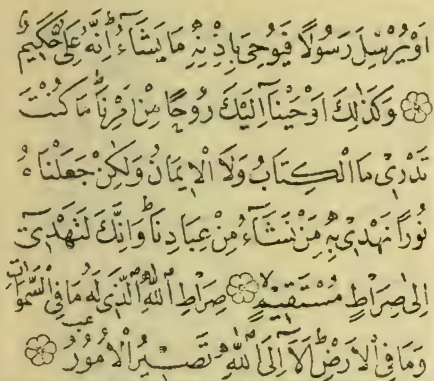 اَوْ يُرْسِلَ رَسُولًا فَيُوحِيَ بِاِذْنِهٖ مَا يَشَآءُ اِنَّهُ عَلِىٌّ حَكِيمٌ
وَكَذٰلِكَ اَوْحَيْنَآ اِلَيْكَ رُوحًا مِنْ اَمْرِنَا مَا كُنْتَ
تَدْرِى مَا الْكِتَابُ وَلَا الْاِيمَانُ وَلٰكِنْ جَعَلْنَاهُ
نُورًا نَهْدِى بِهٖ مَنْ نَشَآءُ مِنْ عِبَادِنَا وَاِنَّكَ لَتَهْدِىٓ
اِلٰى صِرَاطٍ مُسْتَقِيمٍ صِرَاطِ اللّٰهِ الَّذِى لَهُ مَا فِى السَّمٰوَاتِ
وَمَا فِى الْاَرْضِ اَلَآ اِلَى اللّٰهِ تَصِيرُ الْاُمُورُ